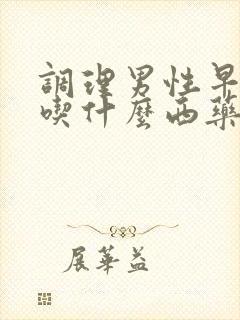 調理男性早
喫什麼西藥
展華益